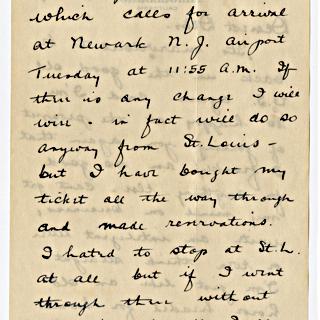 which calls for arrival
at Newark N.J. airport
Tuesday at 11:55 A.M. If
there is any change I will
wire - in fact will do so
anyway from St. Louis -
but I have bought my
ticket all the way through
and made reservations.
I hated to stop at St. L.
at all but if I went
through there without